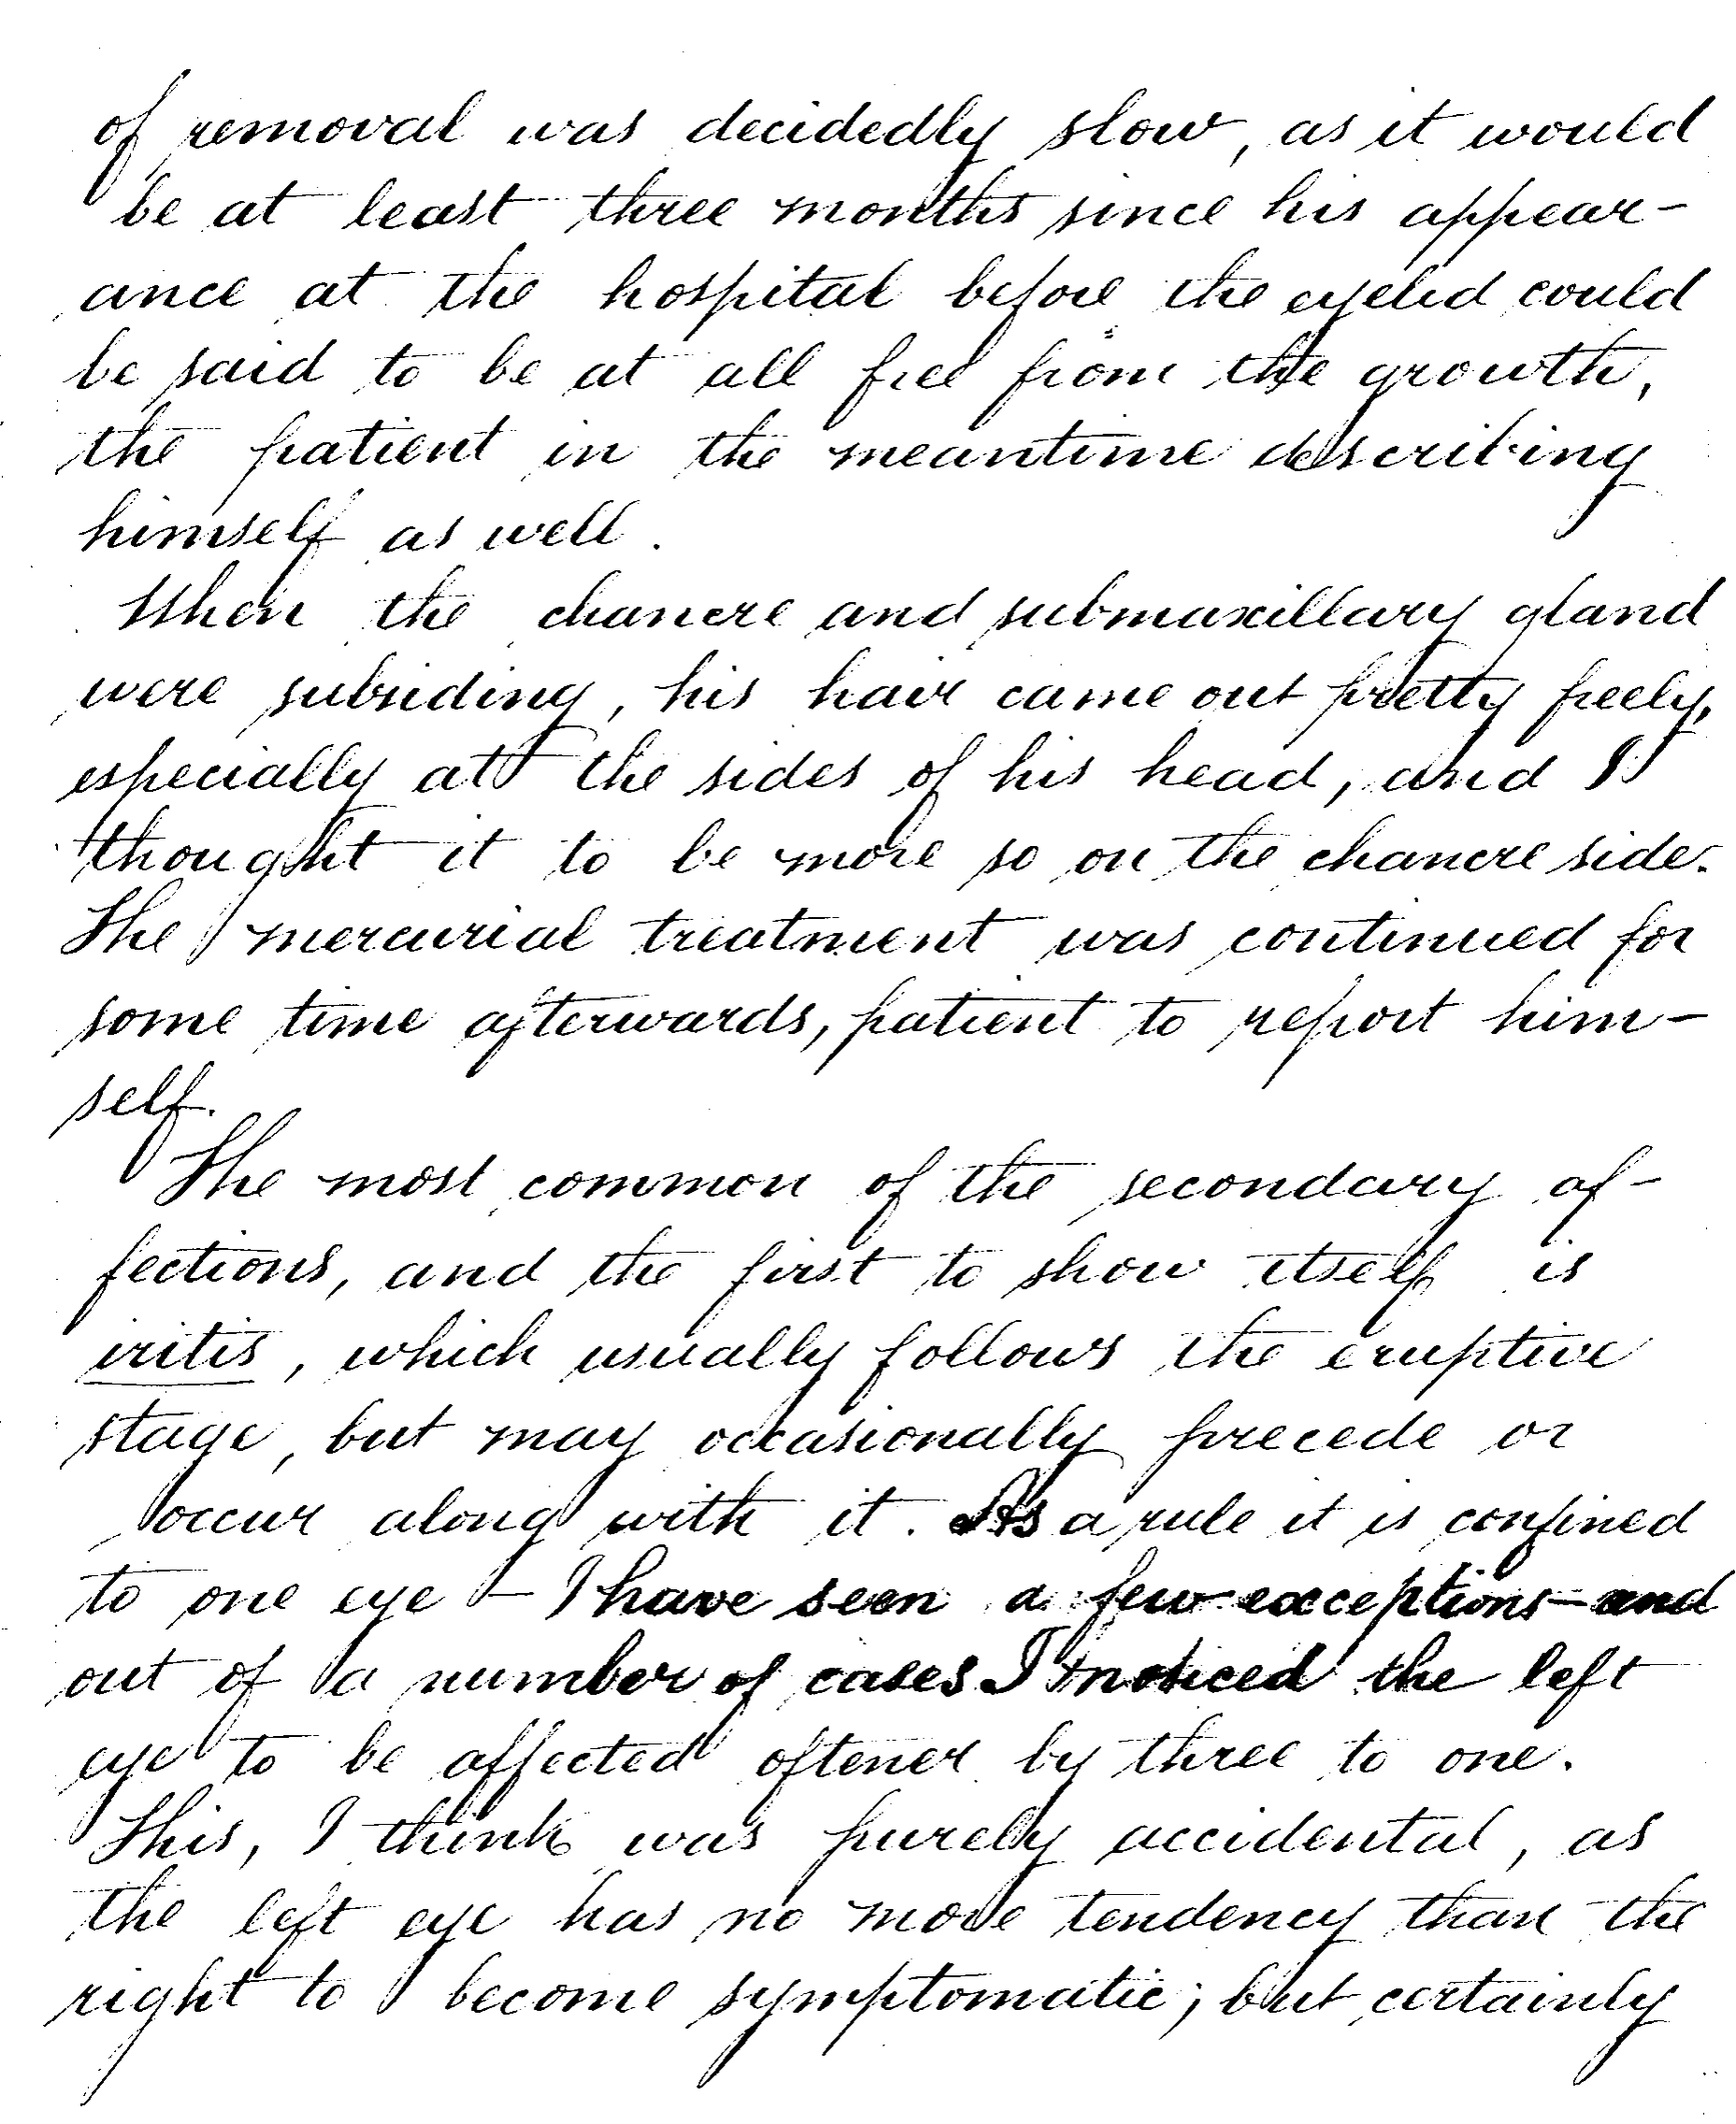 of removal was decidedly slow, as it would
be at least three months since his appear-
ance at the hospital before the eyelid could
be said to be at all free from the growth,
the patient in the meantime describing
himself as well.
When the chancre and submaxillary gland
were subsiding, his hair came out pretty freely,
especially at the sides of his head, and I
thought it to be more so on the chancre side.
The mercurial treatment was continued for
some time afterwards, patient to report him-
self.
The most common of the secondary af-
fections, and the first to show itself is
iritis, which usually follows the eruptive
stage, but may occasionally precede or
occur along with it. As a rule it is confined
to one eye - I have seen a few exceptions - and
out of a number of cases I noticed the left
eye to be affected oftener by three to one.
This, I think was purely accidental, as
the left eye has no more tendency than the
right to become symptomatic; but certainly